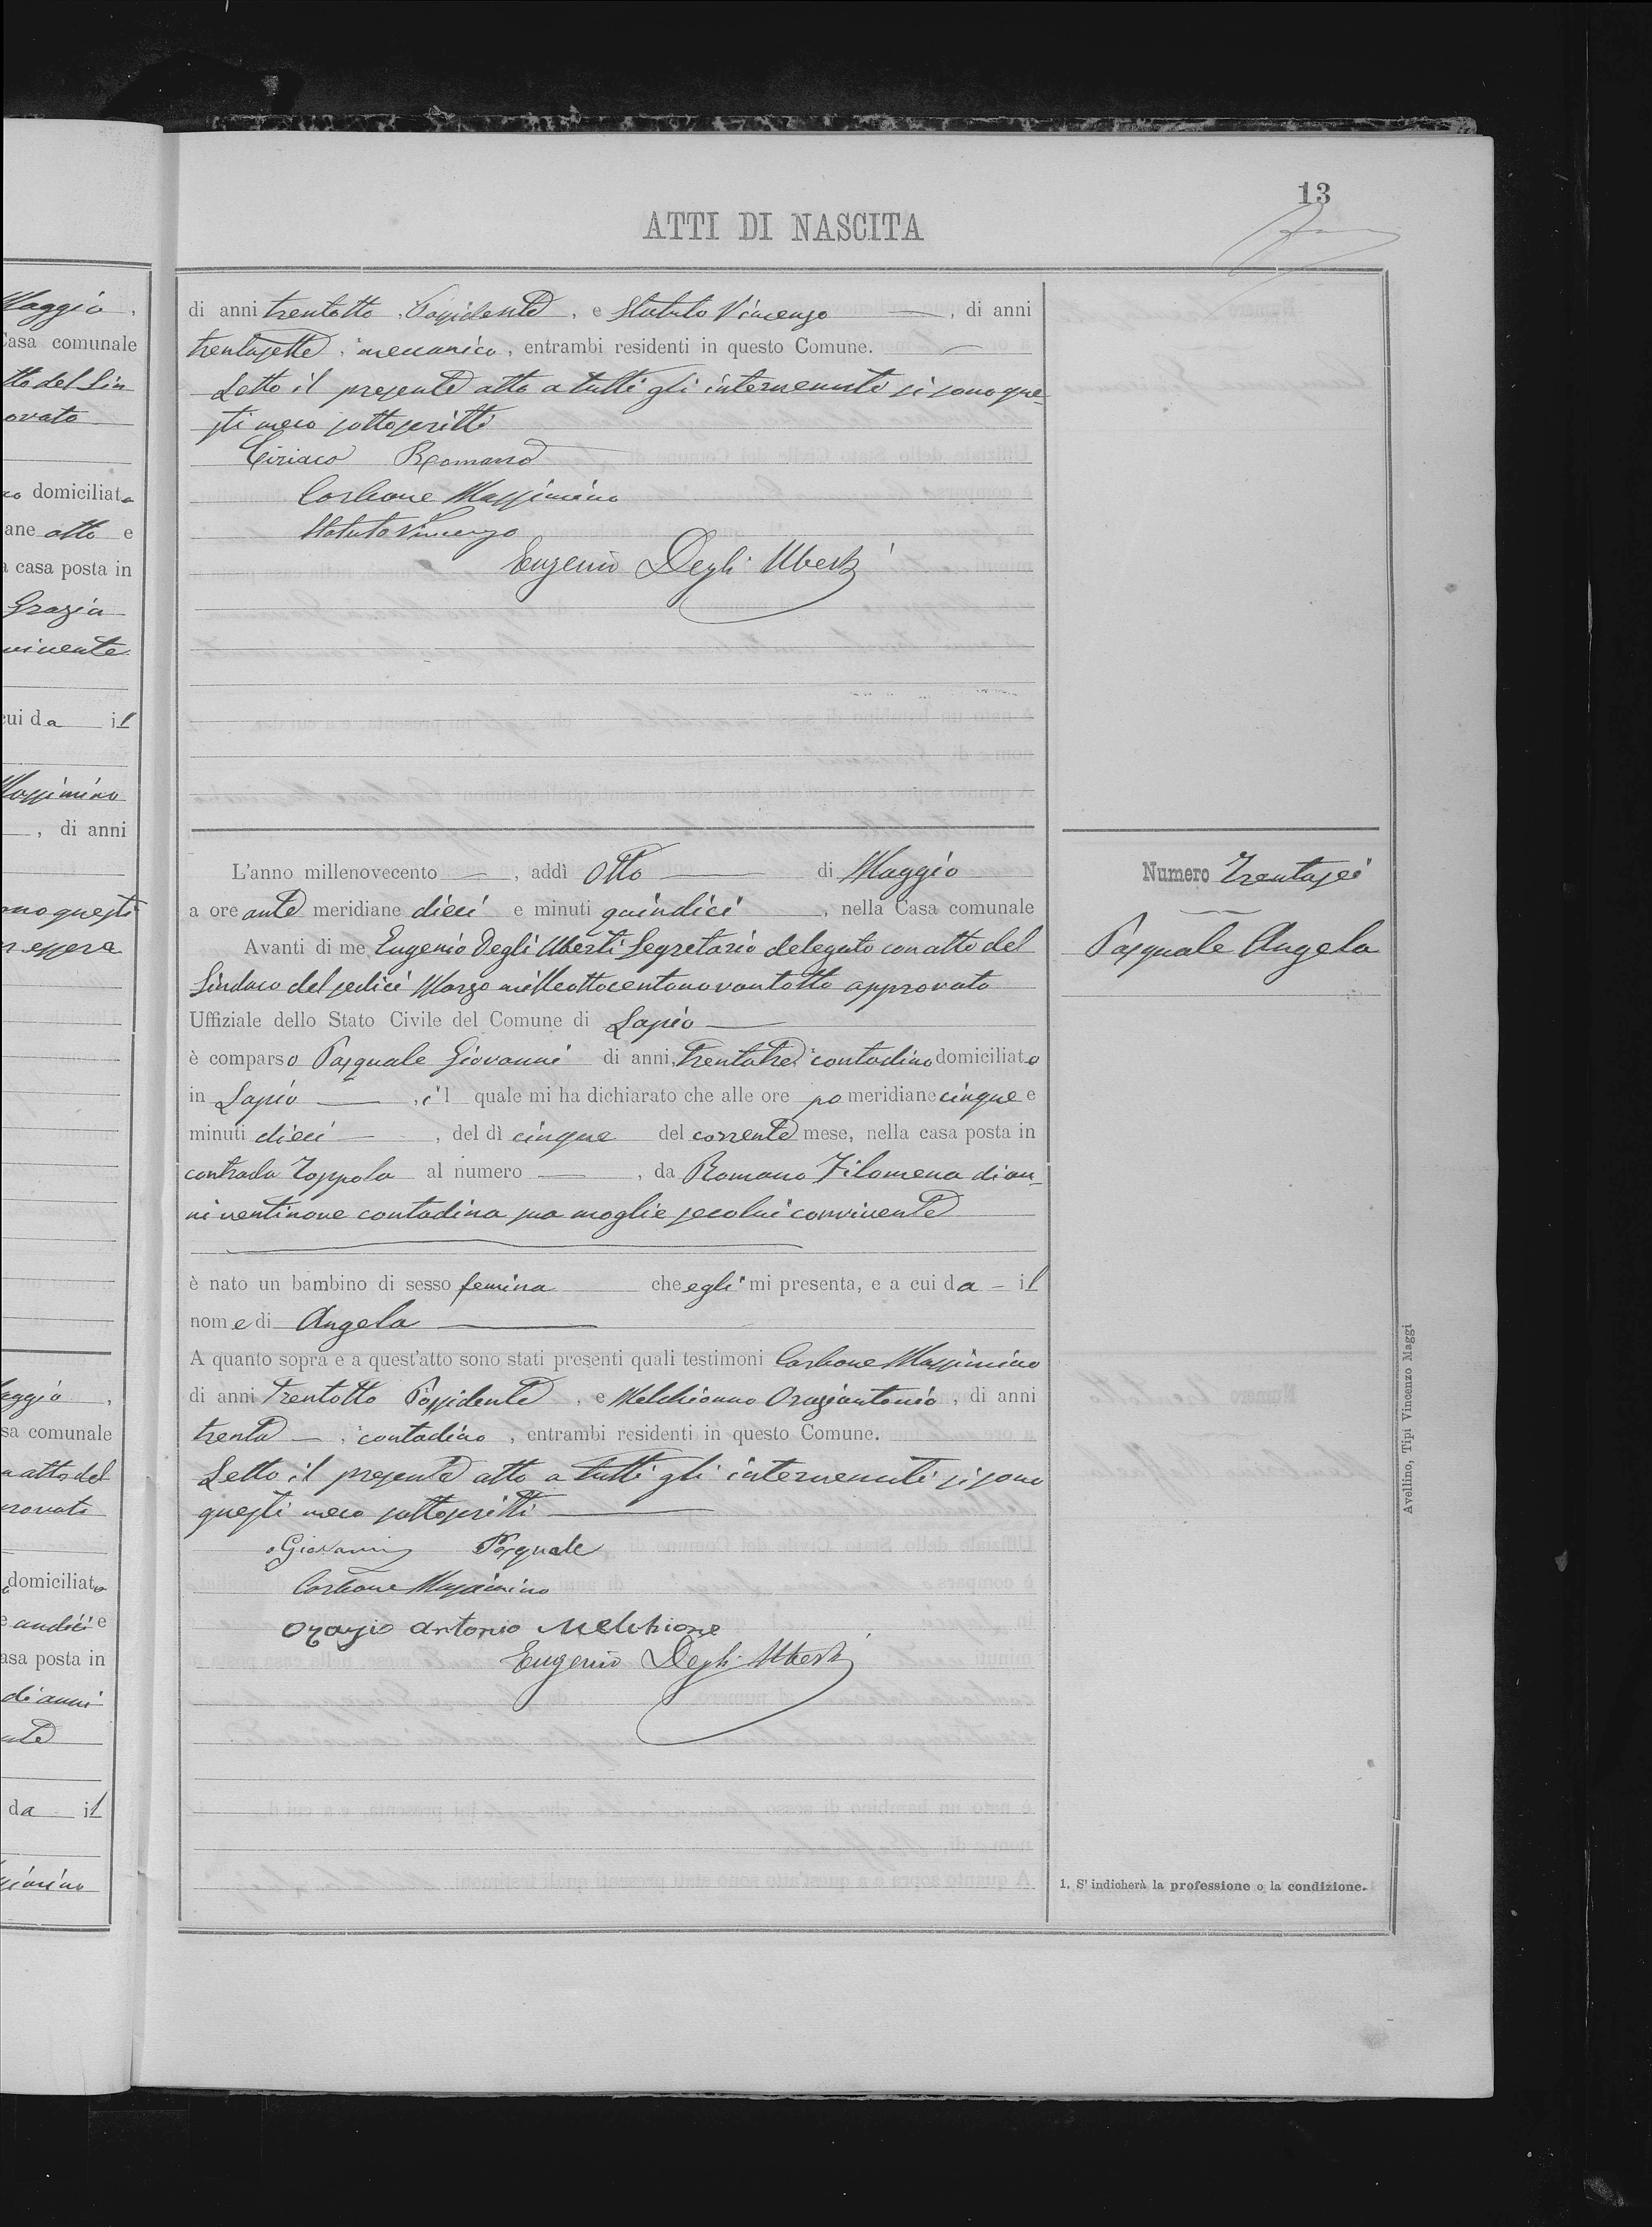 Maggio,
Casa comunale
tto del Sin
ovato
domiciliato
ane otto e
a casa posta in
Grazia
vivente
cui da il
Massimino
, di anni
ono questi
r essere
aggio,
sa comunale
n atto del
provato
domiciliato
e undici e
asa posta in
di anni
nte
da il
simino
13
ATTI DI NASCITA
di anni trentotto, Possidente, e Statuto Vincenzo —, di anni
trentasette, meccanico, entrambi residenti in questo Comune. —
Letto il presente atto a tutti gli intervenuti si sono que-
sti meco sottoscritti
Ciriaco Romano
Carbone Massimino
Statuto Vincenzo
Eugenio Degli Uberti
L'anno millenovecento —, addì Otto — di Maggio
a ore ante meridiane dieci e minuti quindici —, nella Casa comunale
Avanti di me Eugenio Degli Uberti Segretario delegato con atto del
Sindaco del sedici Marzo milleottocentonovantotto approvato
Uffiziale dello Stato Civile del Comune di Lapio —
è comparso Pasquale Giovanni di anni, trentatre contadino domiciliato
in Lapio —, il quale mi ha dichiarato che alle ore po meridiane cinque e
minuti dieci —, del dì cinque del corrente mese, nella casa posta in
contrada Toppola al numero —, da Romano Filomena di an-
ni ventinove contadina sua moglie secolui convivente
è nato un bambino di sesso femina — che egli mi presenta, e a cui da — il
nome di Angela —
A quanto sopra e a quest'atto sono stati presenti quali testimoni Carbone Massimino
di anni trentotto Possidente, e Melchionno Oraziantonio, di anni
trenta —, contadino, entrambi residenti in questo Comune.
Letto il presente atto a tutti gli intervenuti si sono
questi meco sottoscritti —
Giovanni Pasquale
Carbone Massimino
Orazio Antonio Melchione
Eugenio Degli Uberti
Numero Trentasei
Pasquale Angela
1. S'indicherà la professione o la condizione.
Avellino, Tipi Vincenzo Maggi